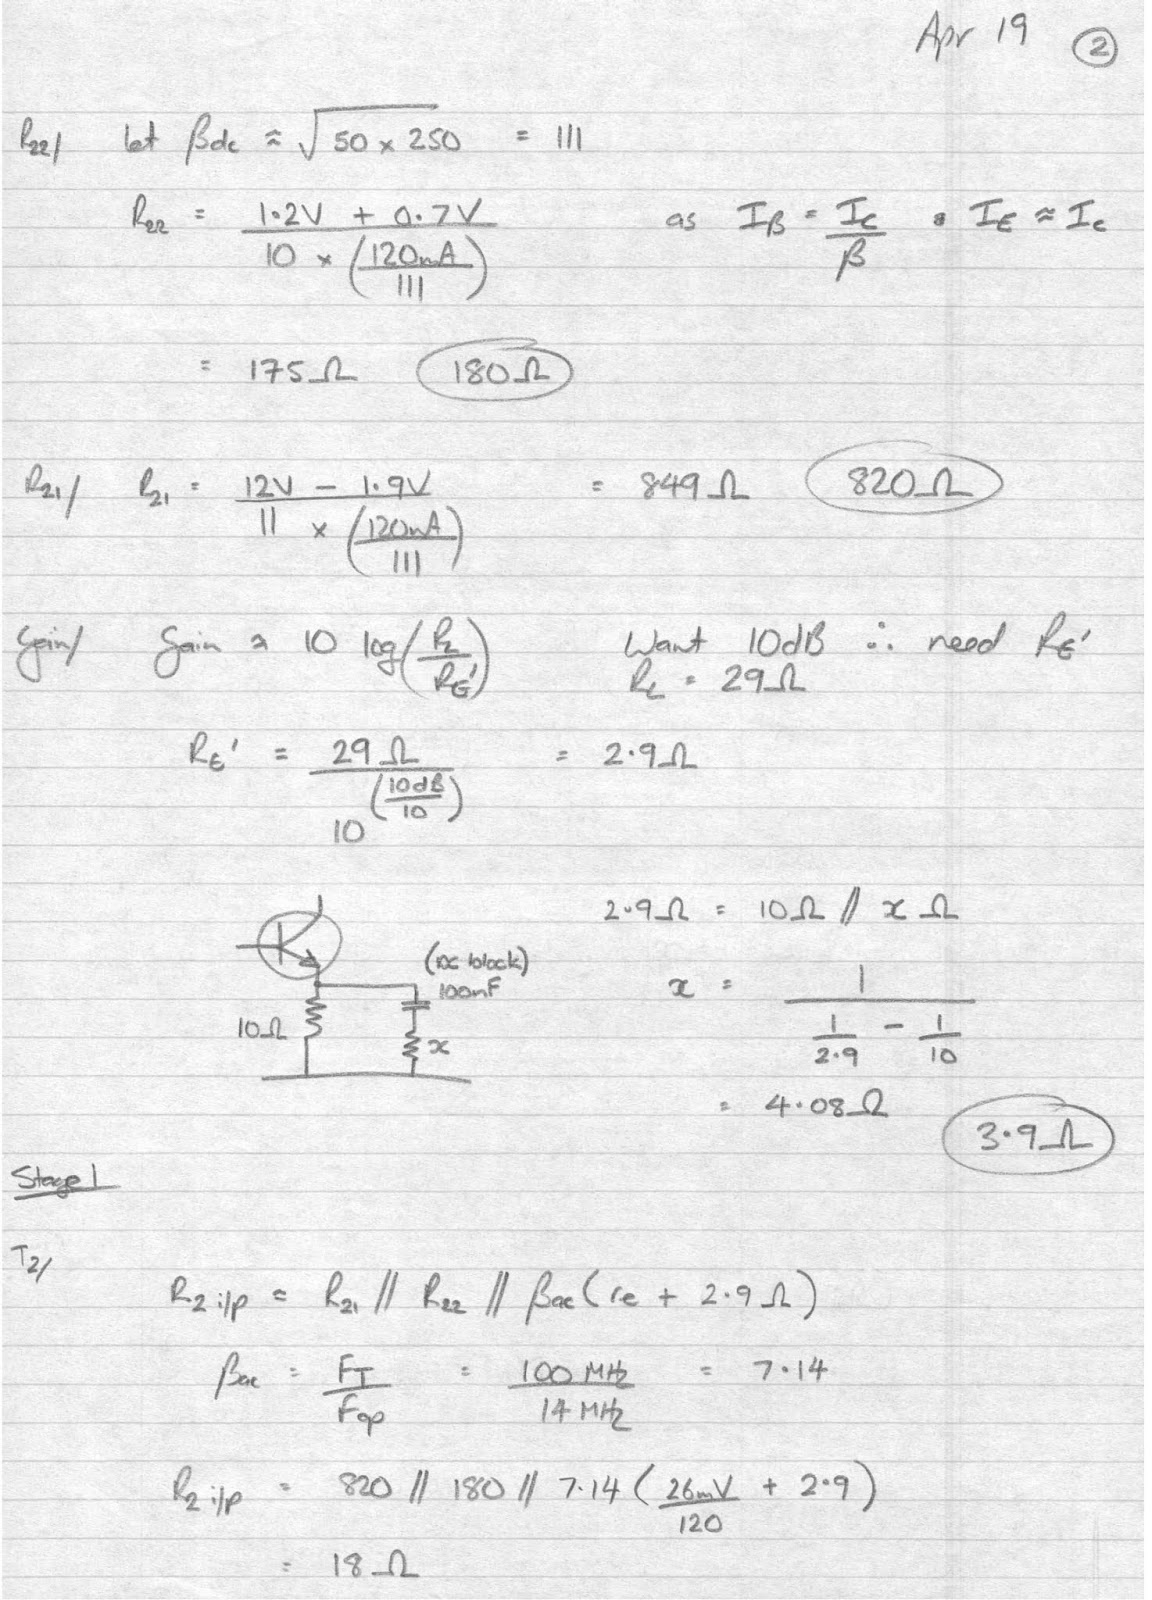 Apr 19 2
R22/ let βdc ≈ √50 × 250 = 111
R22 = (1.2V + 0.7V) / (10 × (120mA / 111)) as IB = IC / β & IE ≈ Ic
= 175Ω 180Ω
R21/ R21 = (12V - 1.9V) / (11 × (120mA / 111)) = 849Ω 820Ω
Gain/ Gain ≈ 10 log(RL / RE') Want 10dB ∴ need RE'
RL = 29Ω
RE' = 29Ω / 10^(10dB / 10) = 2.9Ω
2.9Ω = 10Ω // x Ω
(DC block)
100nF
10Ω
x
x = 1 / (1/2.9 - 1/10)
= 4.08Ω
3.9Ω
Stage 1
T2/
R2 i/p = R21 // R22 // βac (re + 2.9Ω)
βac = FT / Fop = 100 MHz / 14 MHz = 7.14
R2 i/p = 820 // 180 // 7.14 (26mV / 120 + 2.9)
= 18Ω